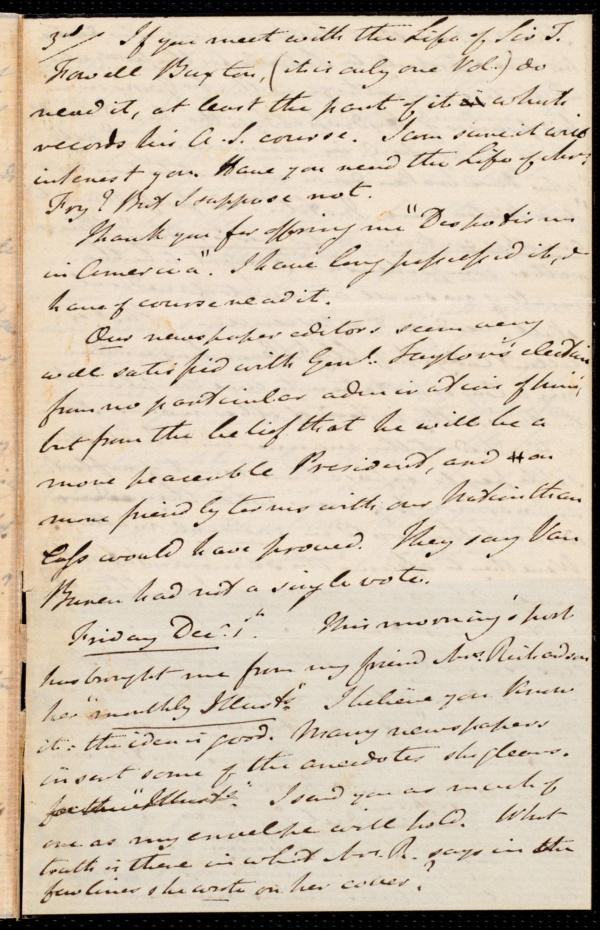 3rd/ If you meet with the Life of Sir T.
Fowell Buxton, (it is only one Vol.) do
read it, at least the part of it which
records his A. S. course. I am sure it will
interest you. Have you read the Life of Mrs.
Fry? But I suppose not.
Thank you for offering me "Despotism
in America". I have long possessed it, &
have of course read it.
Our newspaper editors seem very
well satisfied with Genl. Taylor's election
from no particular admiration of him,
but from the belief that he will be a
more peaceable President, and on
more friendly terms with our Nation than
Cass would have proved. They say Van
Buren had not a single vote.
Friday Decr. 1st. This morning's post
has brought me from my friend Mrs. Richardson
her "monthly Illustns." I believe you know
it: the idea is good. Many newspapers
insert some of the anecdotes she gleans.
for the "Illustns". I send you as much of
one as my envelope will hold. What
truth is there in what Mrs. R. says in the
few lines she wrote on her cover?